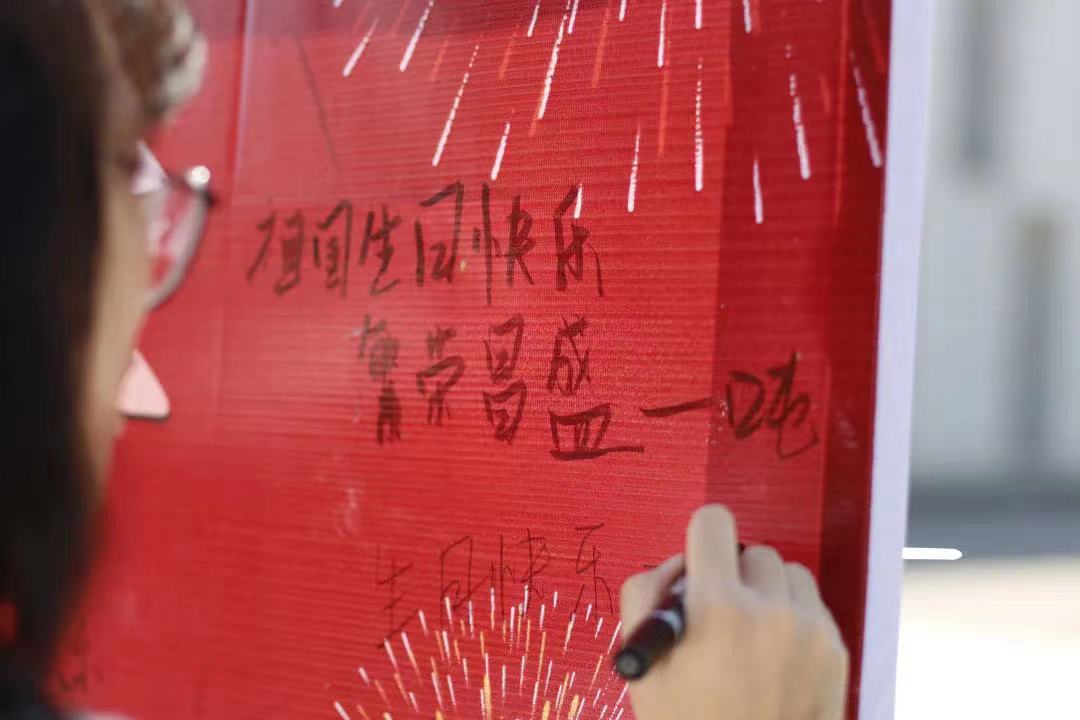 祖国生日快乐
繁荣昌盛一吨
生日快乐
乐